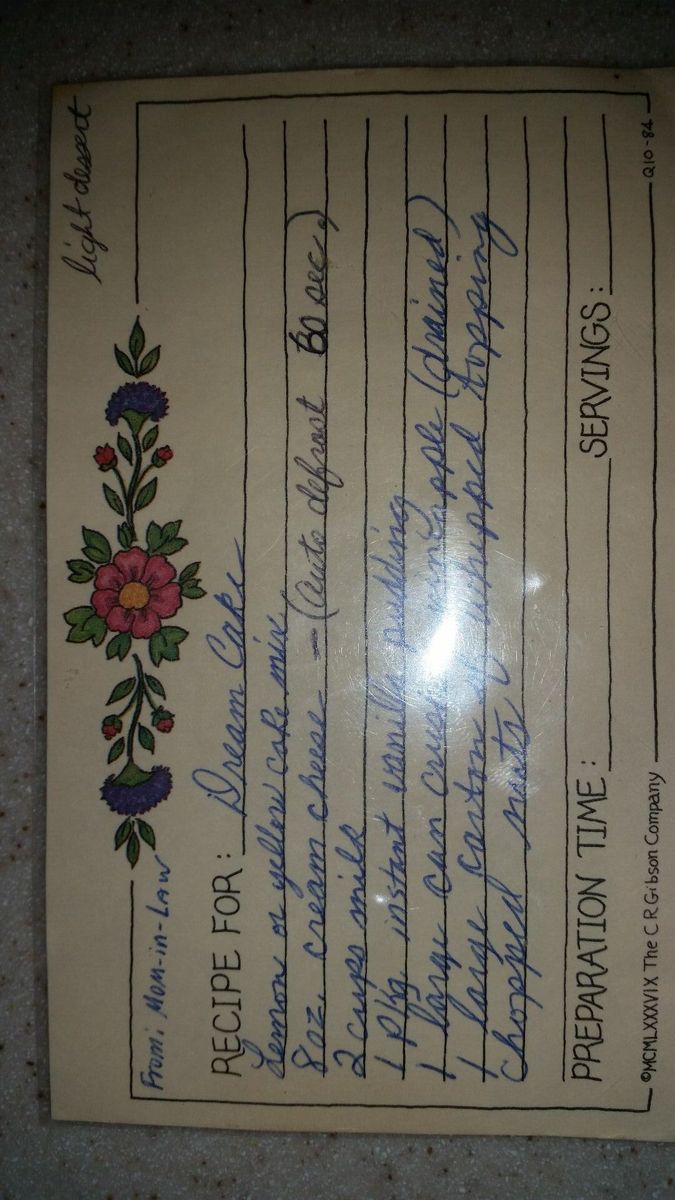 light dessert
From: Mom-in-Law
RECIPE FOR: Dream Cake
Lemon or yellow cake mix
8 oz. cream cheese – (auto defrost 60 sec.)
2 cups milk
1 pkg instant vanilla pudding
1 large can crushed pineapple (drained)
1 large carton of whipped topping
Chopped nuts
PREPARATION TIME: SERVINGS:
©MCMLXXXVIX The C R Gibson Company Q10-84